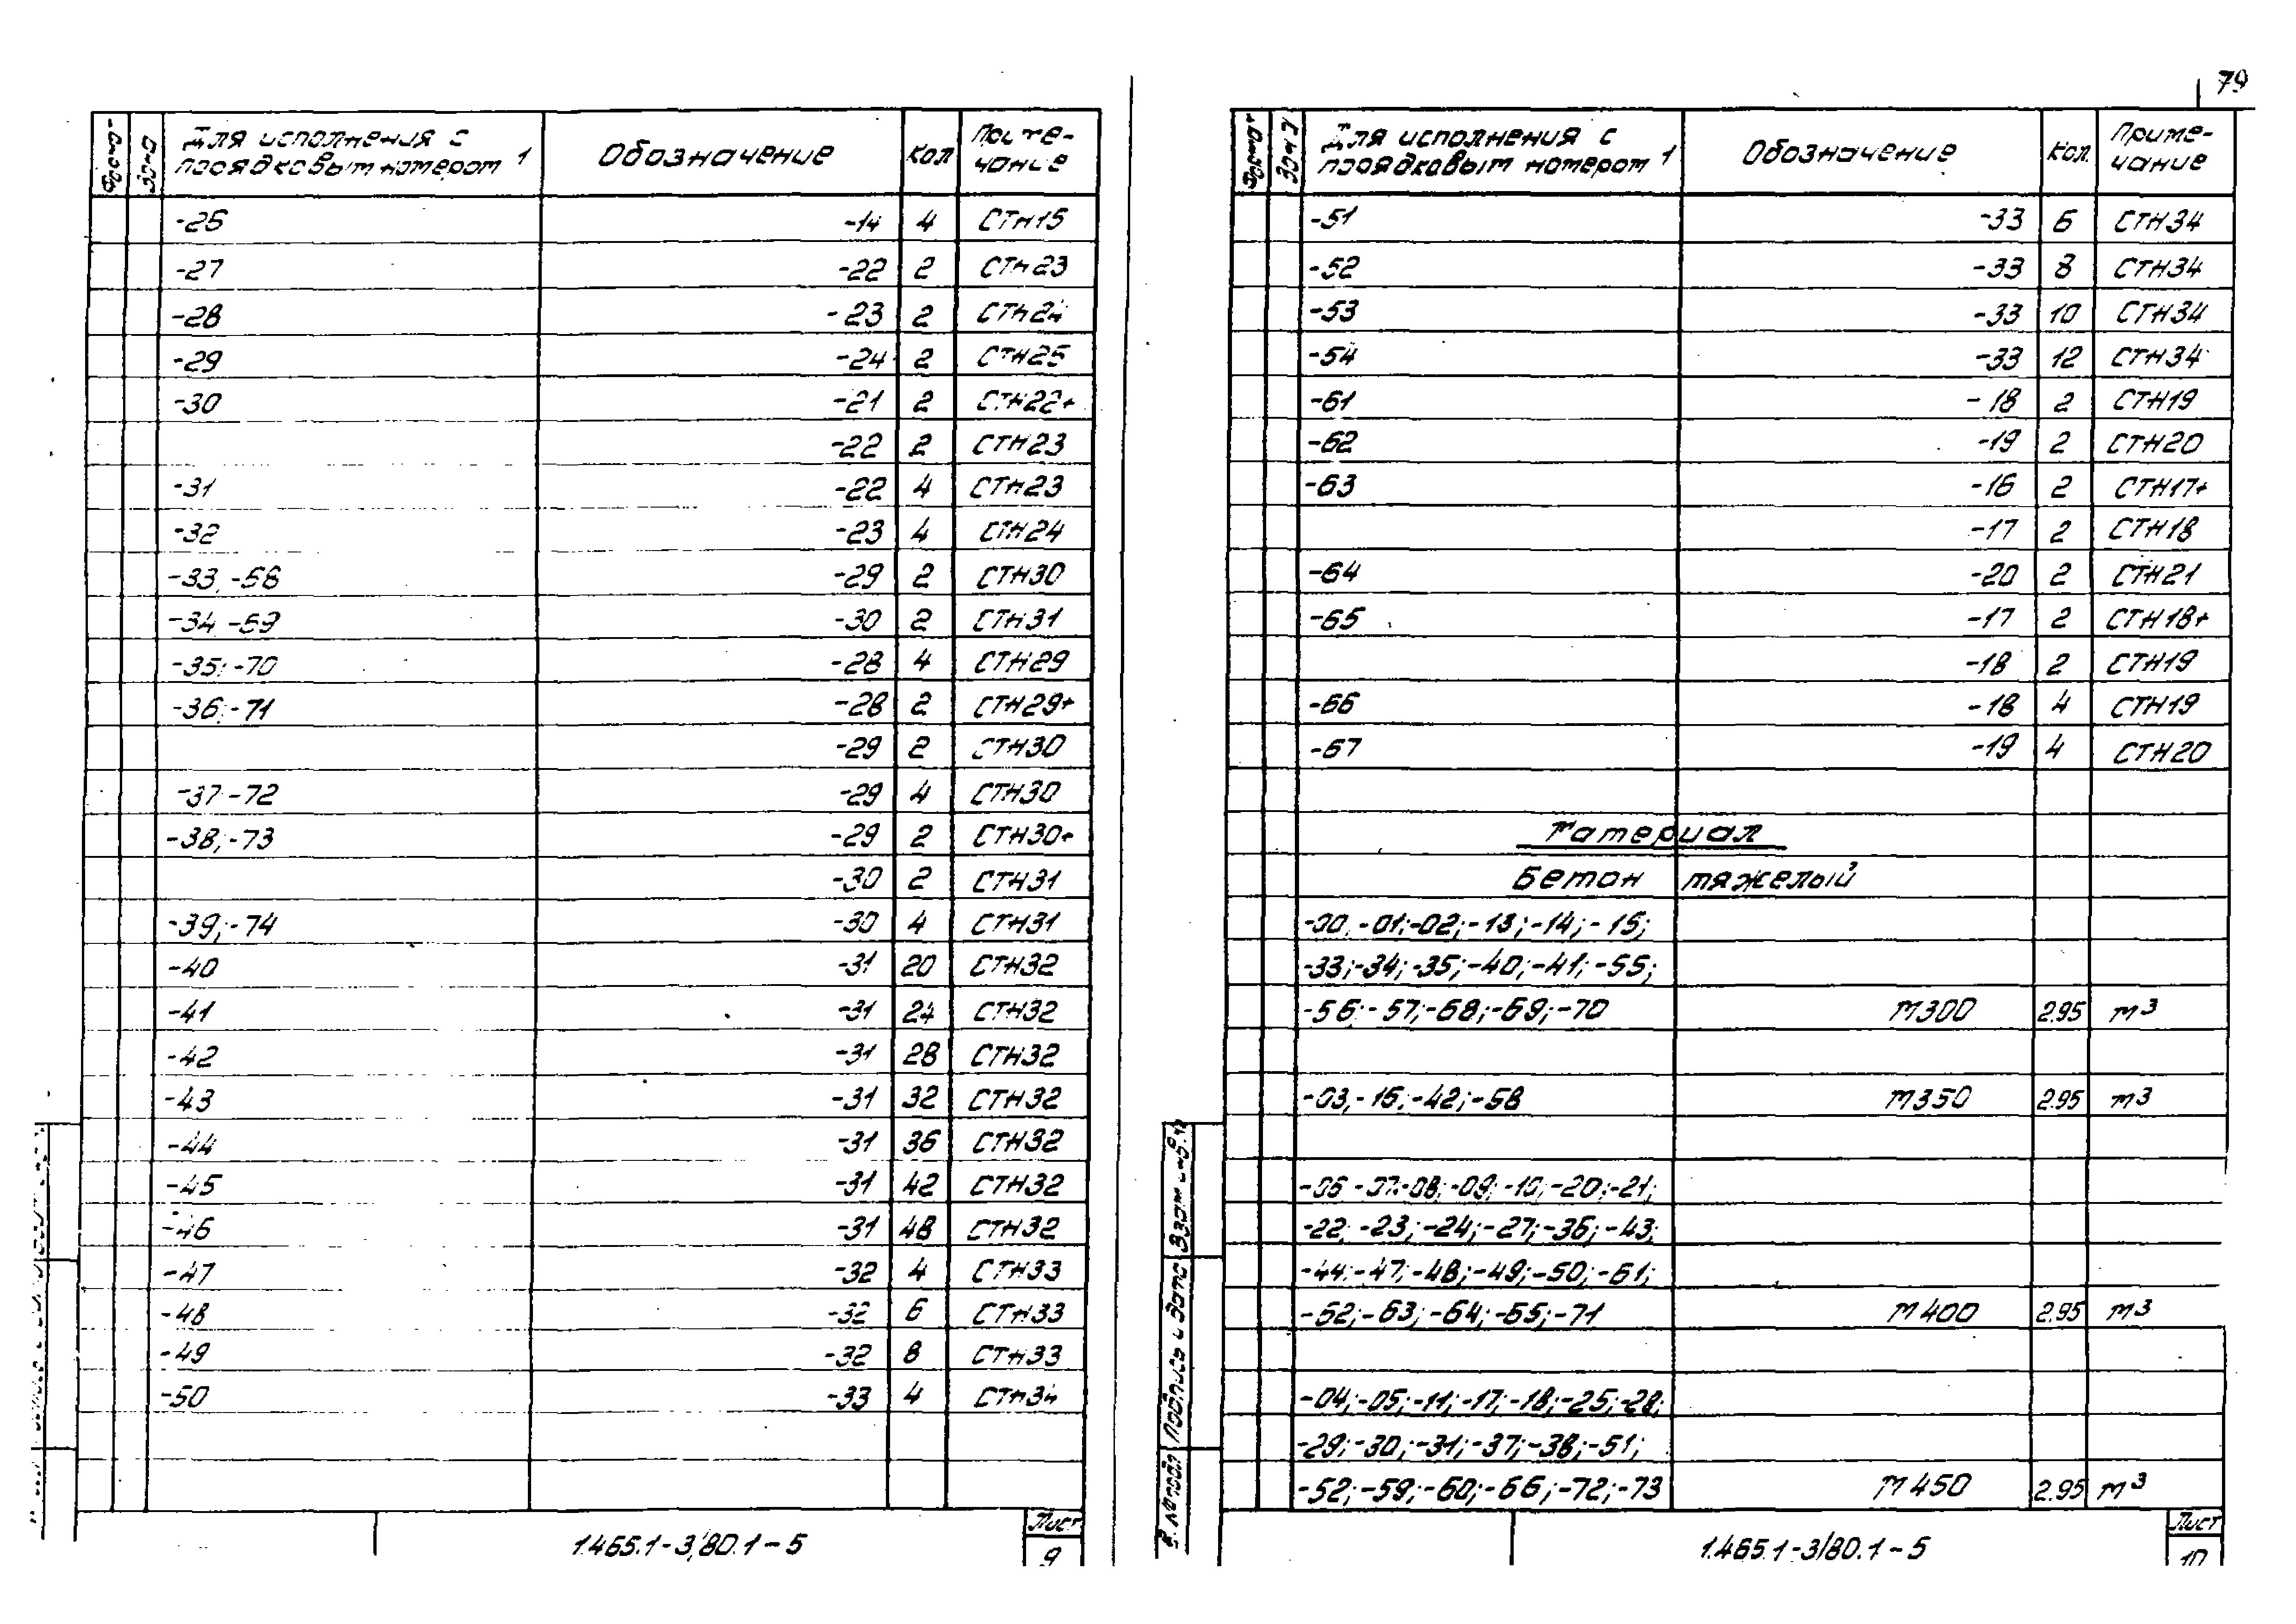 79
Форма-
Зона
Для исполнения с
порядковым номером 1
Обозначение
Кол
Приме-
чание
-26 -14 4 СТН15
-27 -22 2 СТН23
-28 -23 2 СТН24
-29 -24 2 СТН25
-30 -21 2 СТН22+
-22 2 СТН23
-31 -22 4 СТН23
-32 -23 4 СТН24
-33; -68 -29 2 СТН30
-34 -69 -30 2 СТН31
-35; -70 -28 4 СТН29
-36; -71 -28 2 СТН29+
-29 2 СТН30
-37; -72 -29 4 СТН30
-38; -73 -29 2 СТН30+
-30 2 СТН31
-39; -74 -30 4 СТН31
-40 -31 20 СТН32
-41 -31 24 СТН32
-42 -31 28 СТН32
-43 -31 32 СТН32
-44 -31 36 СТН32
-45 -31 42 СТН32
-46 -31 48 СТН32
-47 -32 4 СТН33
-48 -32 6 СТН33
-49 -32 8 СТН33
-50 -33 4 СТН34
1.465.1-3/80.1-5
Лист
9
Формат
Зона
Для исполнения с
порядковым номером 1
Обозначение
Кол.
Приме-
чание
-51 -33 6 СТН34
-52 -33 8 СТН34
-53 -33 10 СТН34
-54 -33 12 СТН34
-61 -18 2 СТН19
-62 -19 2 СТН20
-63 -16 2 СТН17+
-17 2 СТН18
-64 -20 2 СТН21
-65 -17 2 СТН18+
-18 2 СТН19
-66 -18 4 СТН19
-67 -19 4 СТН20
Материал
Бетон тяжелый
-00; -01; -02; -13; -14; -15;
-33; -34; -35; -40; -41; -55;
-56; -57; -68; -69; -70 М300 2.95 м³
-03; -16; -42; -58 М350 2.95 м³
-06 -07; -08; -09; -10; -20; -21;
-22; -23; -24; -27; -36; -43;
-44; -47; -48; -49; -50; -61;
-62; -63; -64; -65; -71 М400 2.95 м³
-04; -05; -11; -17; -18; -25; -28;
-29; -30; -31; -37; -38; -51;
-52; -59; -60; -66; -72; -73 М450 2.95 м³
Подпись и дата
1.465.1-3/80.1-5
Лист
10